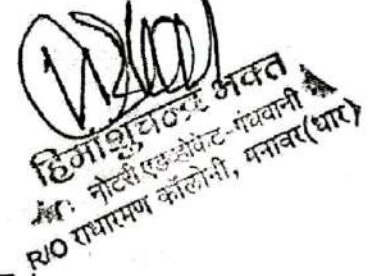 हिमांशुचन्द्र भक्त
नोटरी एडव्होकेट-गंधवानी
R/O राधारमण कॉलोनी, मनावर(धार)